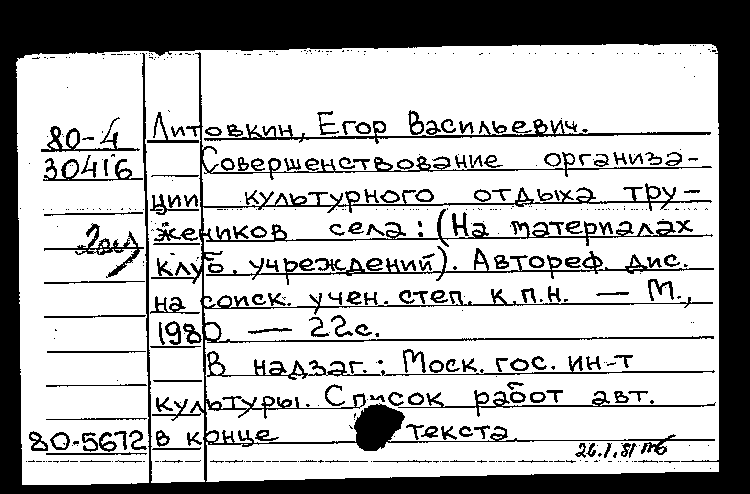 80-4 Литовкин, Егор Васильевич.
30416 Совершенствование организа-
ции культурного отдыха тру-
жеников села: (На материалах
2экз клуб. учреждений). Автореф. дис.
на соиск. учен. степ. к.п.н. — М.,
1980. — 22с.
В надзаг.: Моск. гос. ин-т
культуры. Список работ авт.
80-5672 в конце текста.
26.1.81